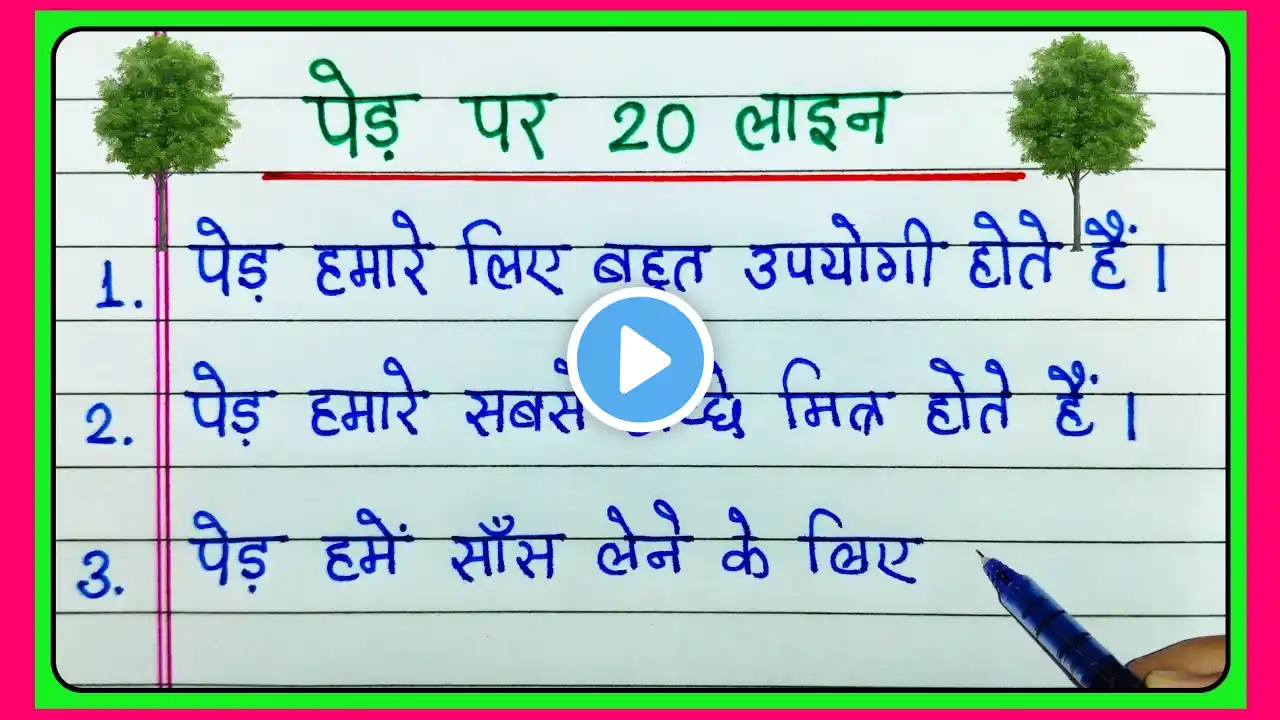 पेड़ पर 20 लाइन
1. पेड़ हमारे लिए बहुत उपयोगी होते हैं।
2. पेड़ हमारे सबसे मित्र होते हैं।
3. पेड़ हमें साँस लेने के लिए